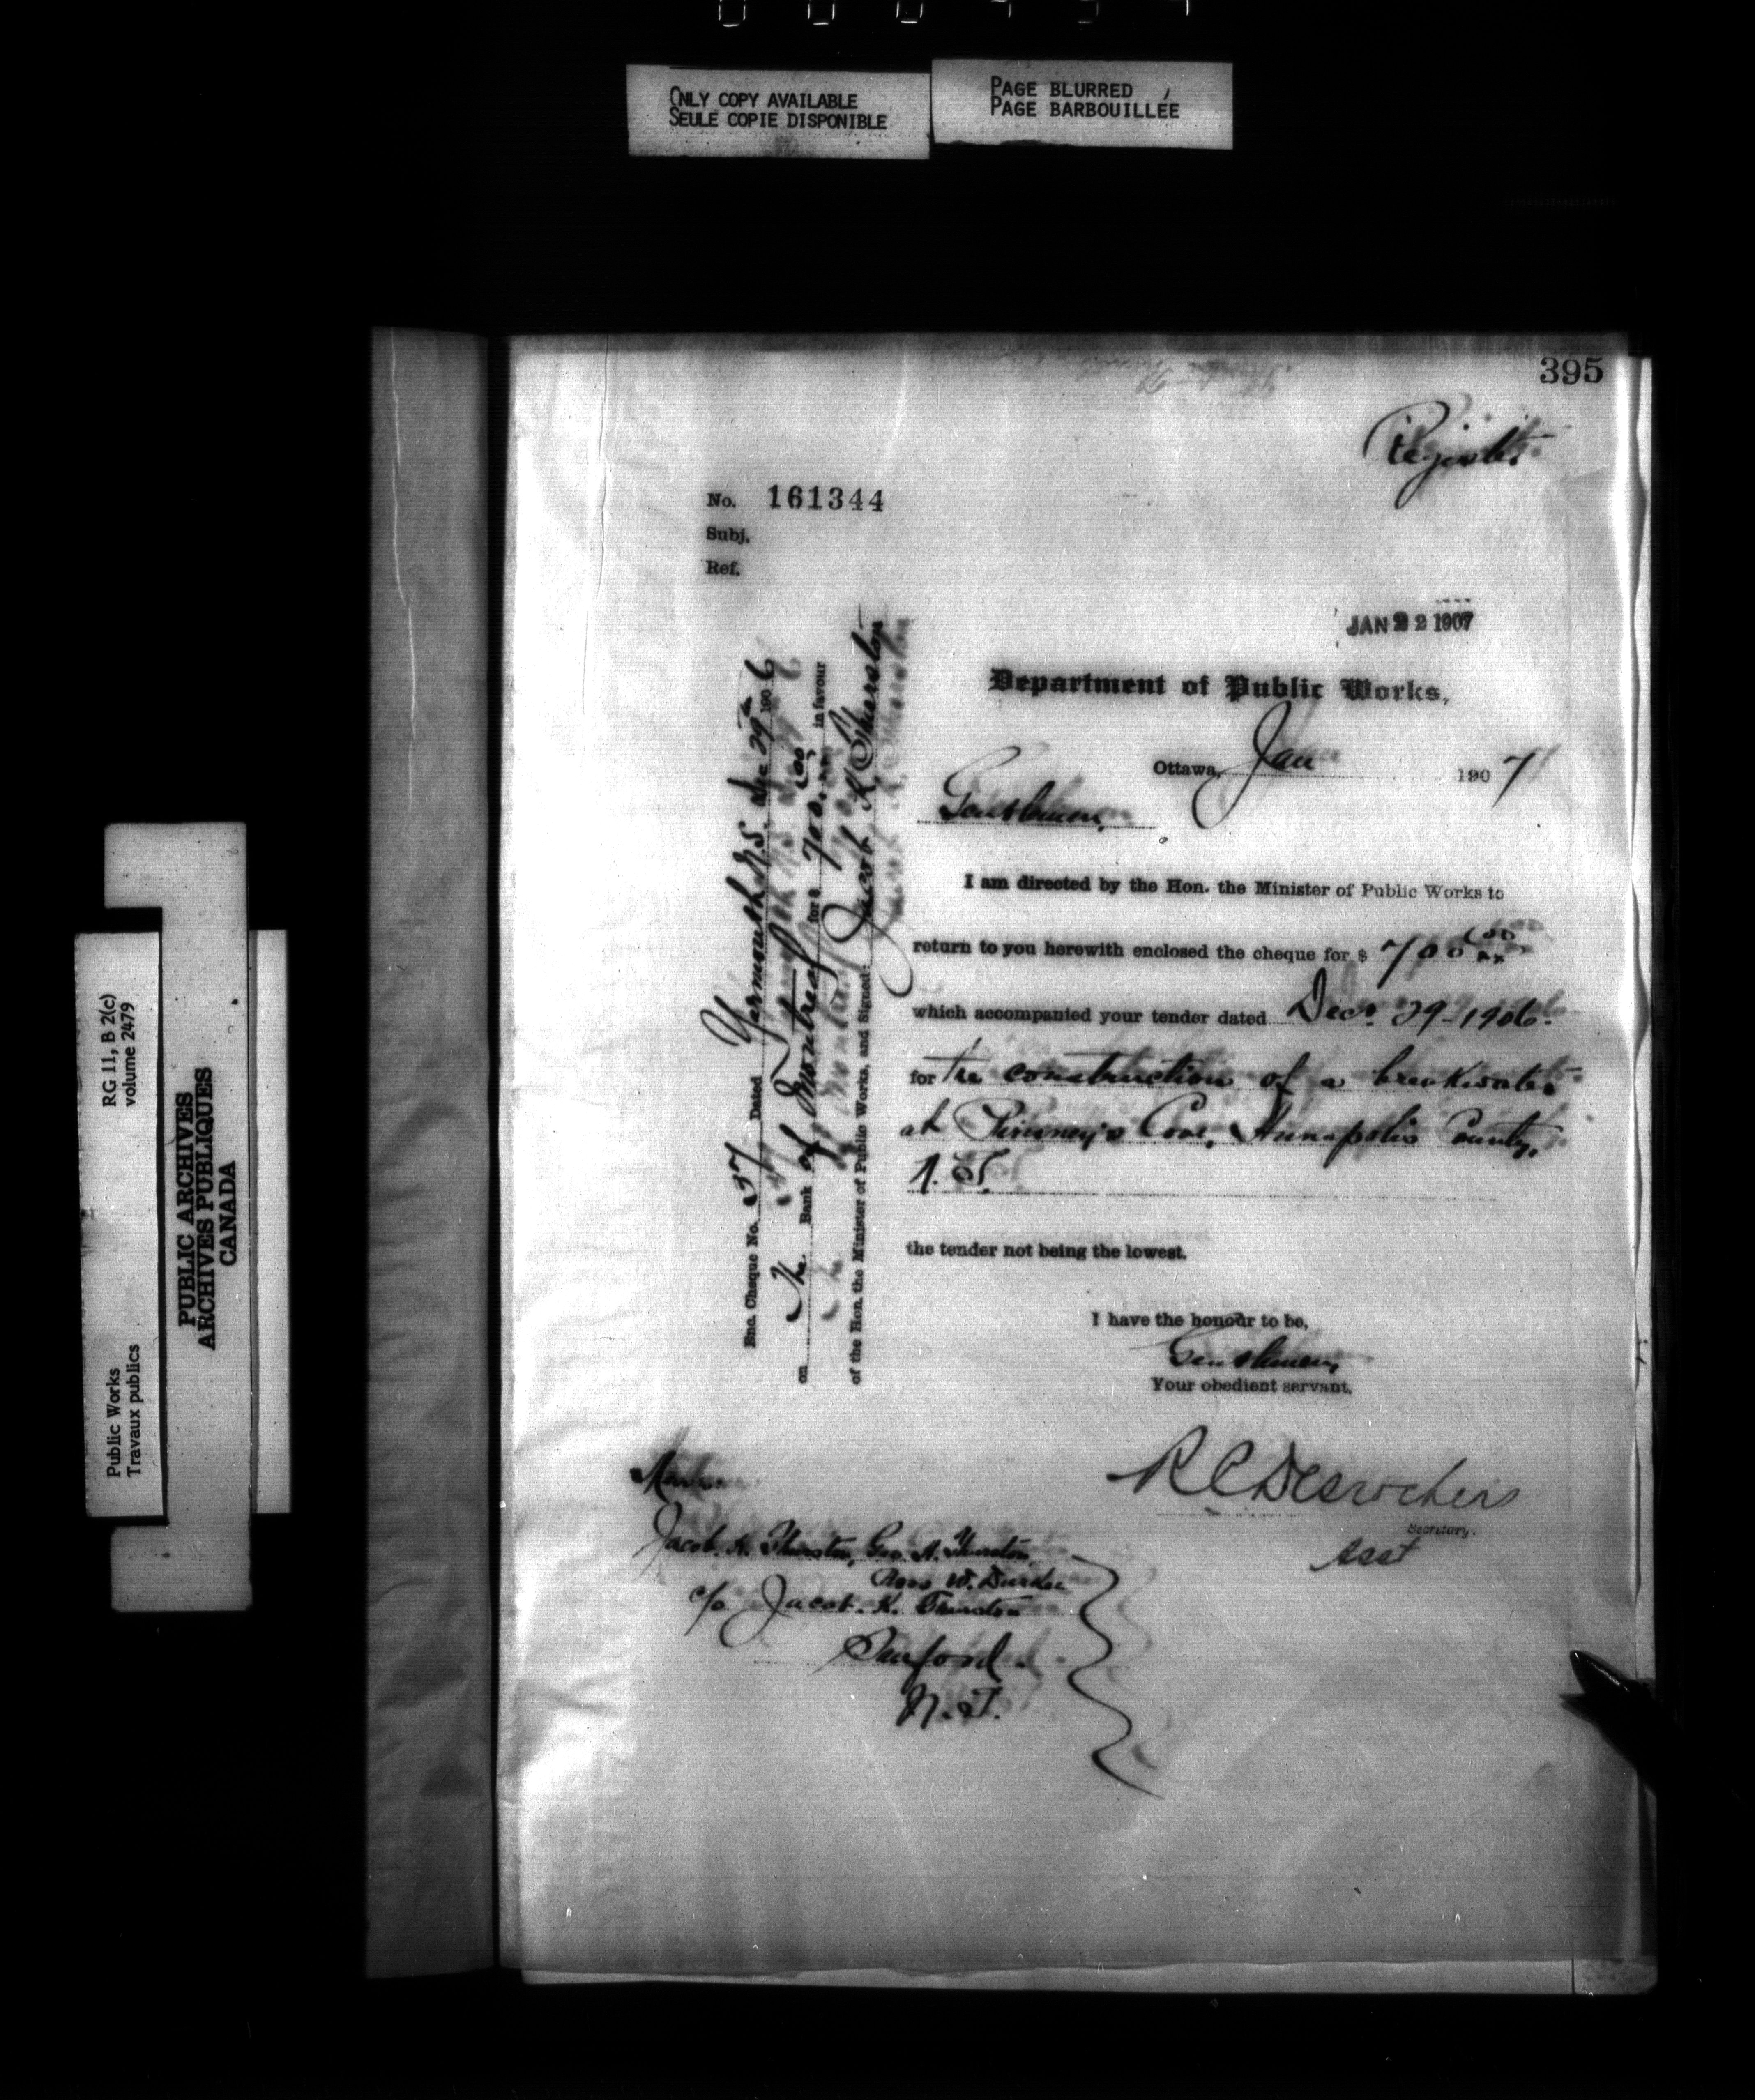 ONLY COPY AVAILABLE
SEULE COPIE DISPONIBLE
PAGE BLURRED
PAGE BARBOUILLÉE
395
Register
No. 161344
Subj.
Ref.
JAN 22 1907
Department of Public Works,
Ottawa, Jan 1907
Gentlemen,
I am directed by the Hon. the Minister of Public Works to
return to you herewith enclosed the cheque for $ 700 00/xx
which accompanied your tender dated Dec. 29-1906.
for the construction of a breakwater
at Cove, Annapolis County,
N.S.
the tender not being the lowest.
I have the honour to be,
Gentlemen,
Your obedient servant,
R C Desrochers
Secretary.
Asst
Enc. Cheque No. 37 Dated Yarmouth N.S. Dec 29th 1906
on The Bank of Montreal for $ 700. 00/xx in favour
of the Hon. the Minister of Public Works, and Signed: Jacob K. Thurston
Messrs
Jacob. K. Thurston, Geo. H. Thurston,
Ross W.
c/o Jacob. K. Thurston
Sanford.
N.S.
RG 11, B 2(c)
volume 2479
PUBLIC ARCHIVES
ARCHIVES PUBLIQUES
CANADA
Public Works
Travaux publics